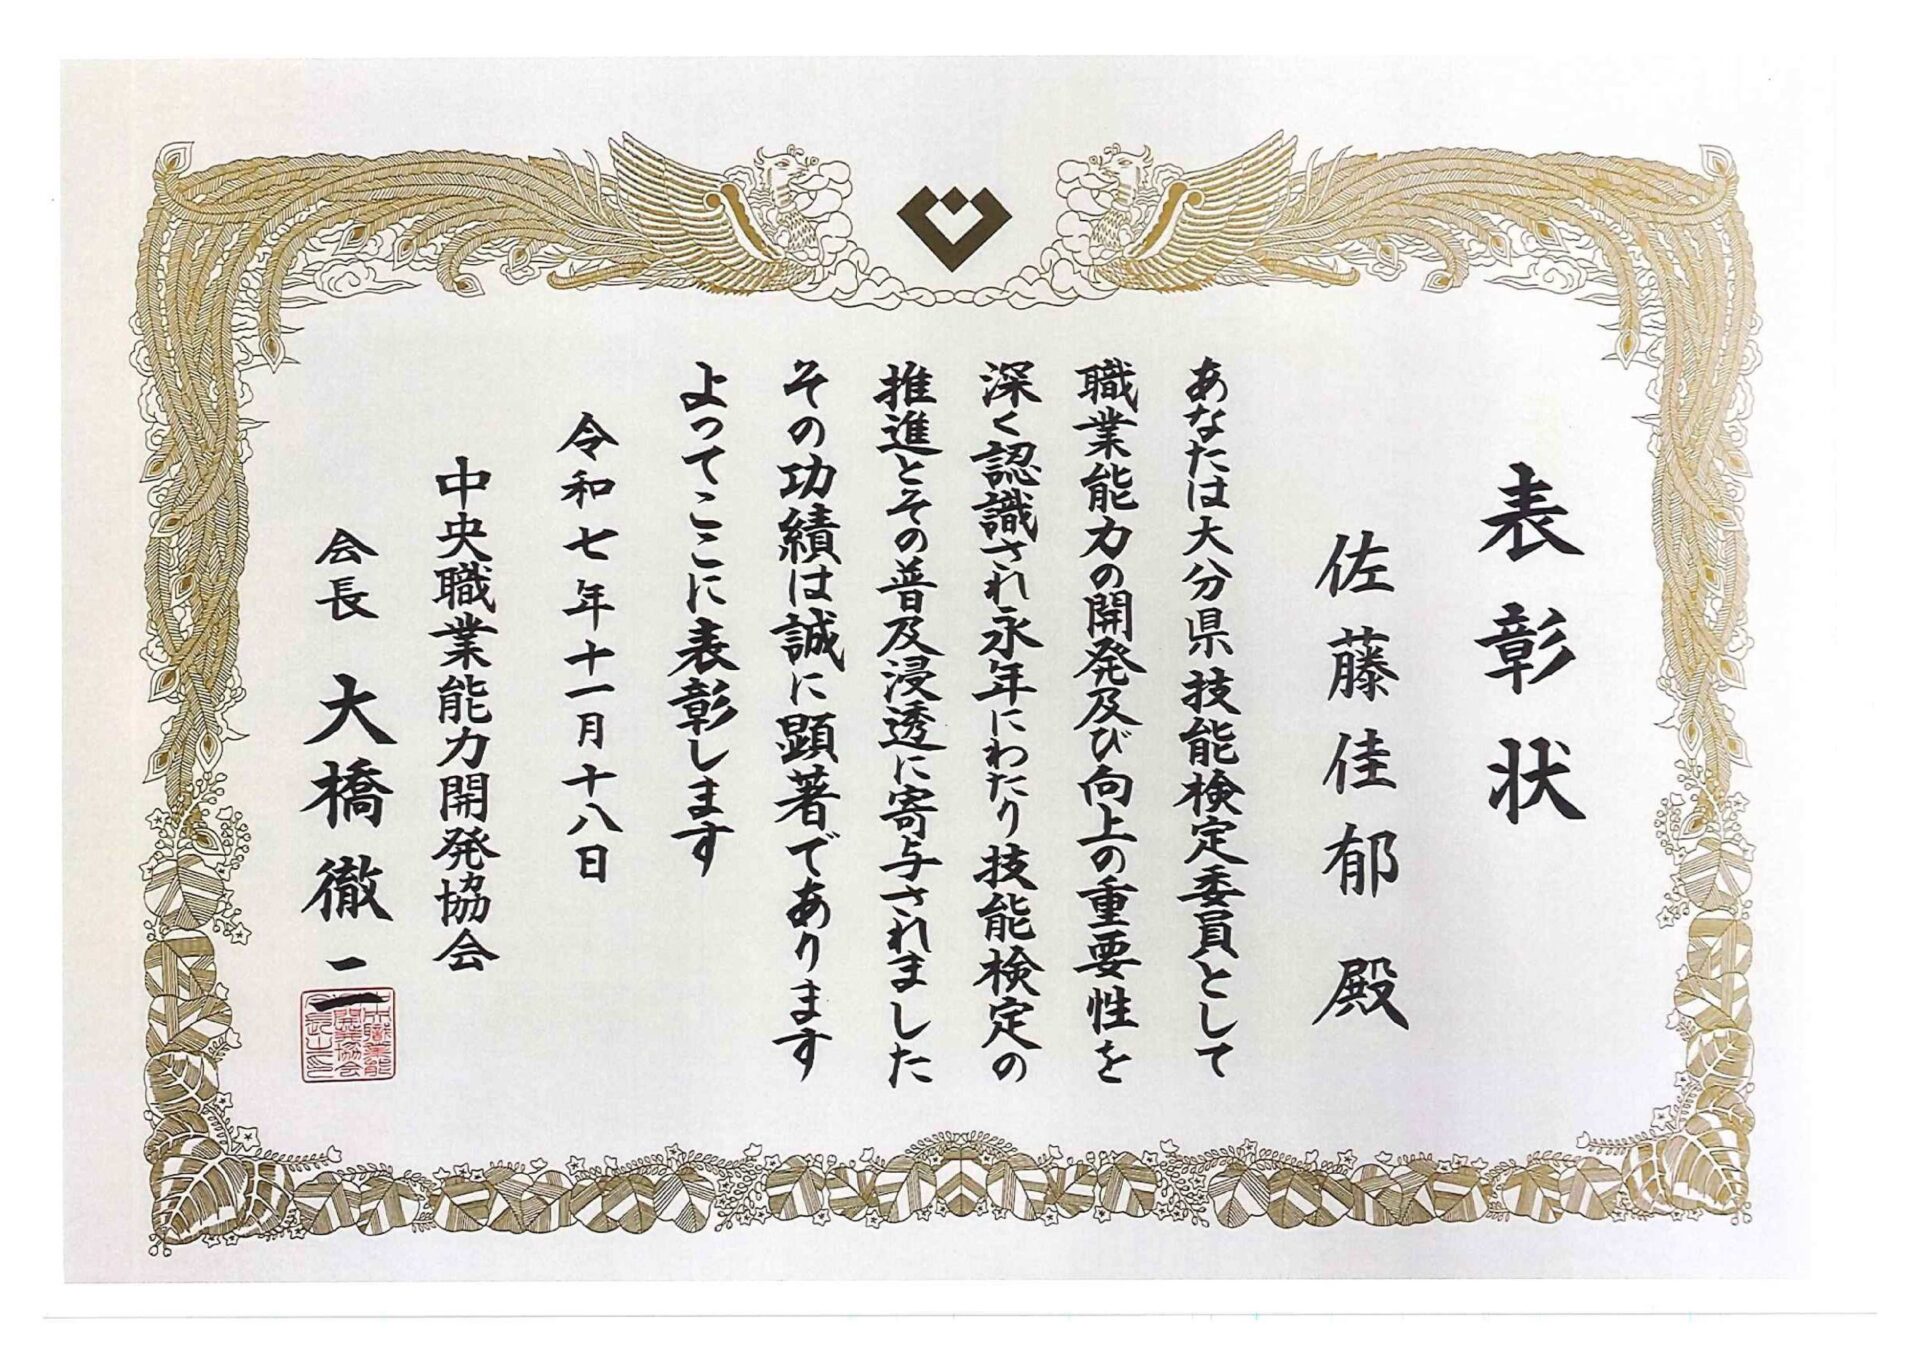 表彰状
佐藤佳郁殿
あなたは大分県技能検定委員として
職業能力の開発及び向上の重要性を
深く認識され永年にわたり技能検定の
推進とその普及浸透に寄与されました
その功績は誠に顕著であります
よってここに表彰します
令和七年十一月十八日
中央職業能力開発協会
会長 大橋徹二